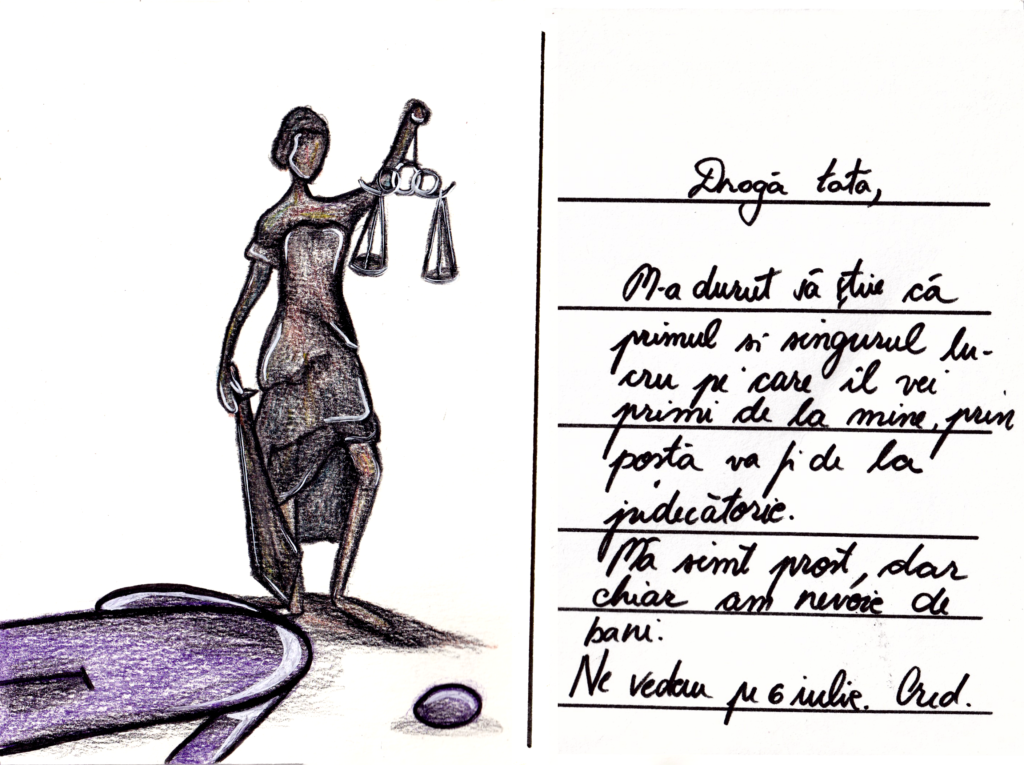 Dragă tată,
M-a durut să știe că
primul si singurul lu-
cru pe care il vei
primi de la mine, prin
poștă va fi de la
judecătorie.
Mă simt prost, dar
chiar am nevoie de
bani.
Ne vedem pe 6 iulie. Cred.